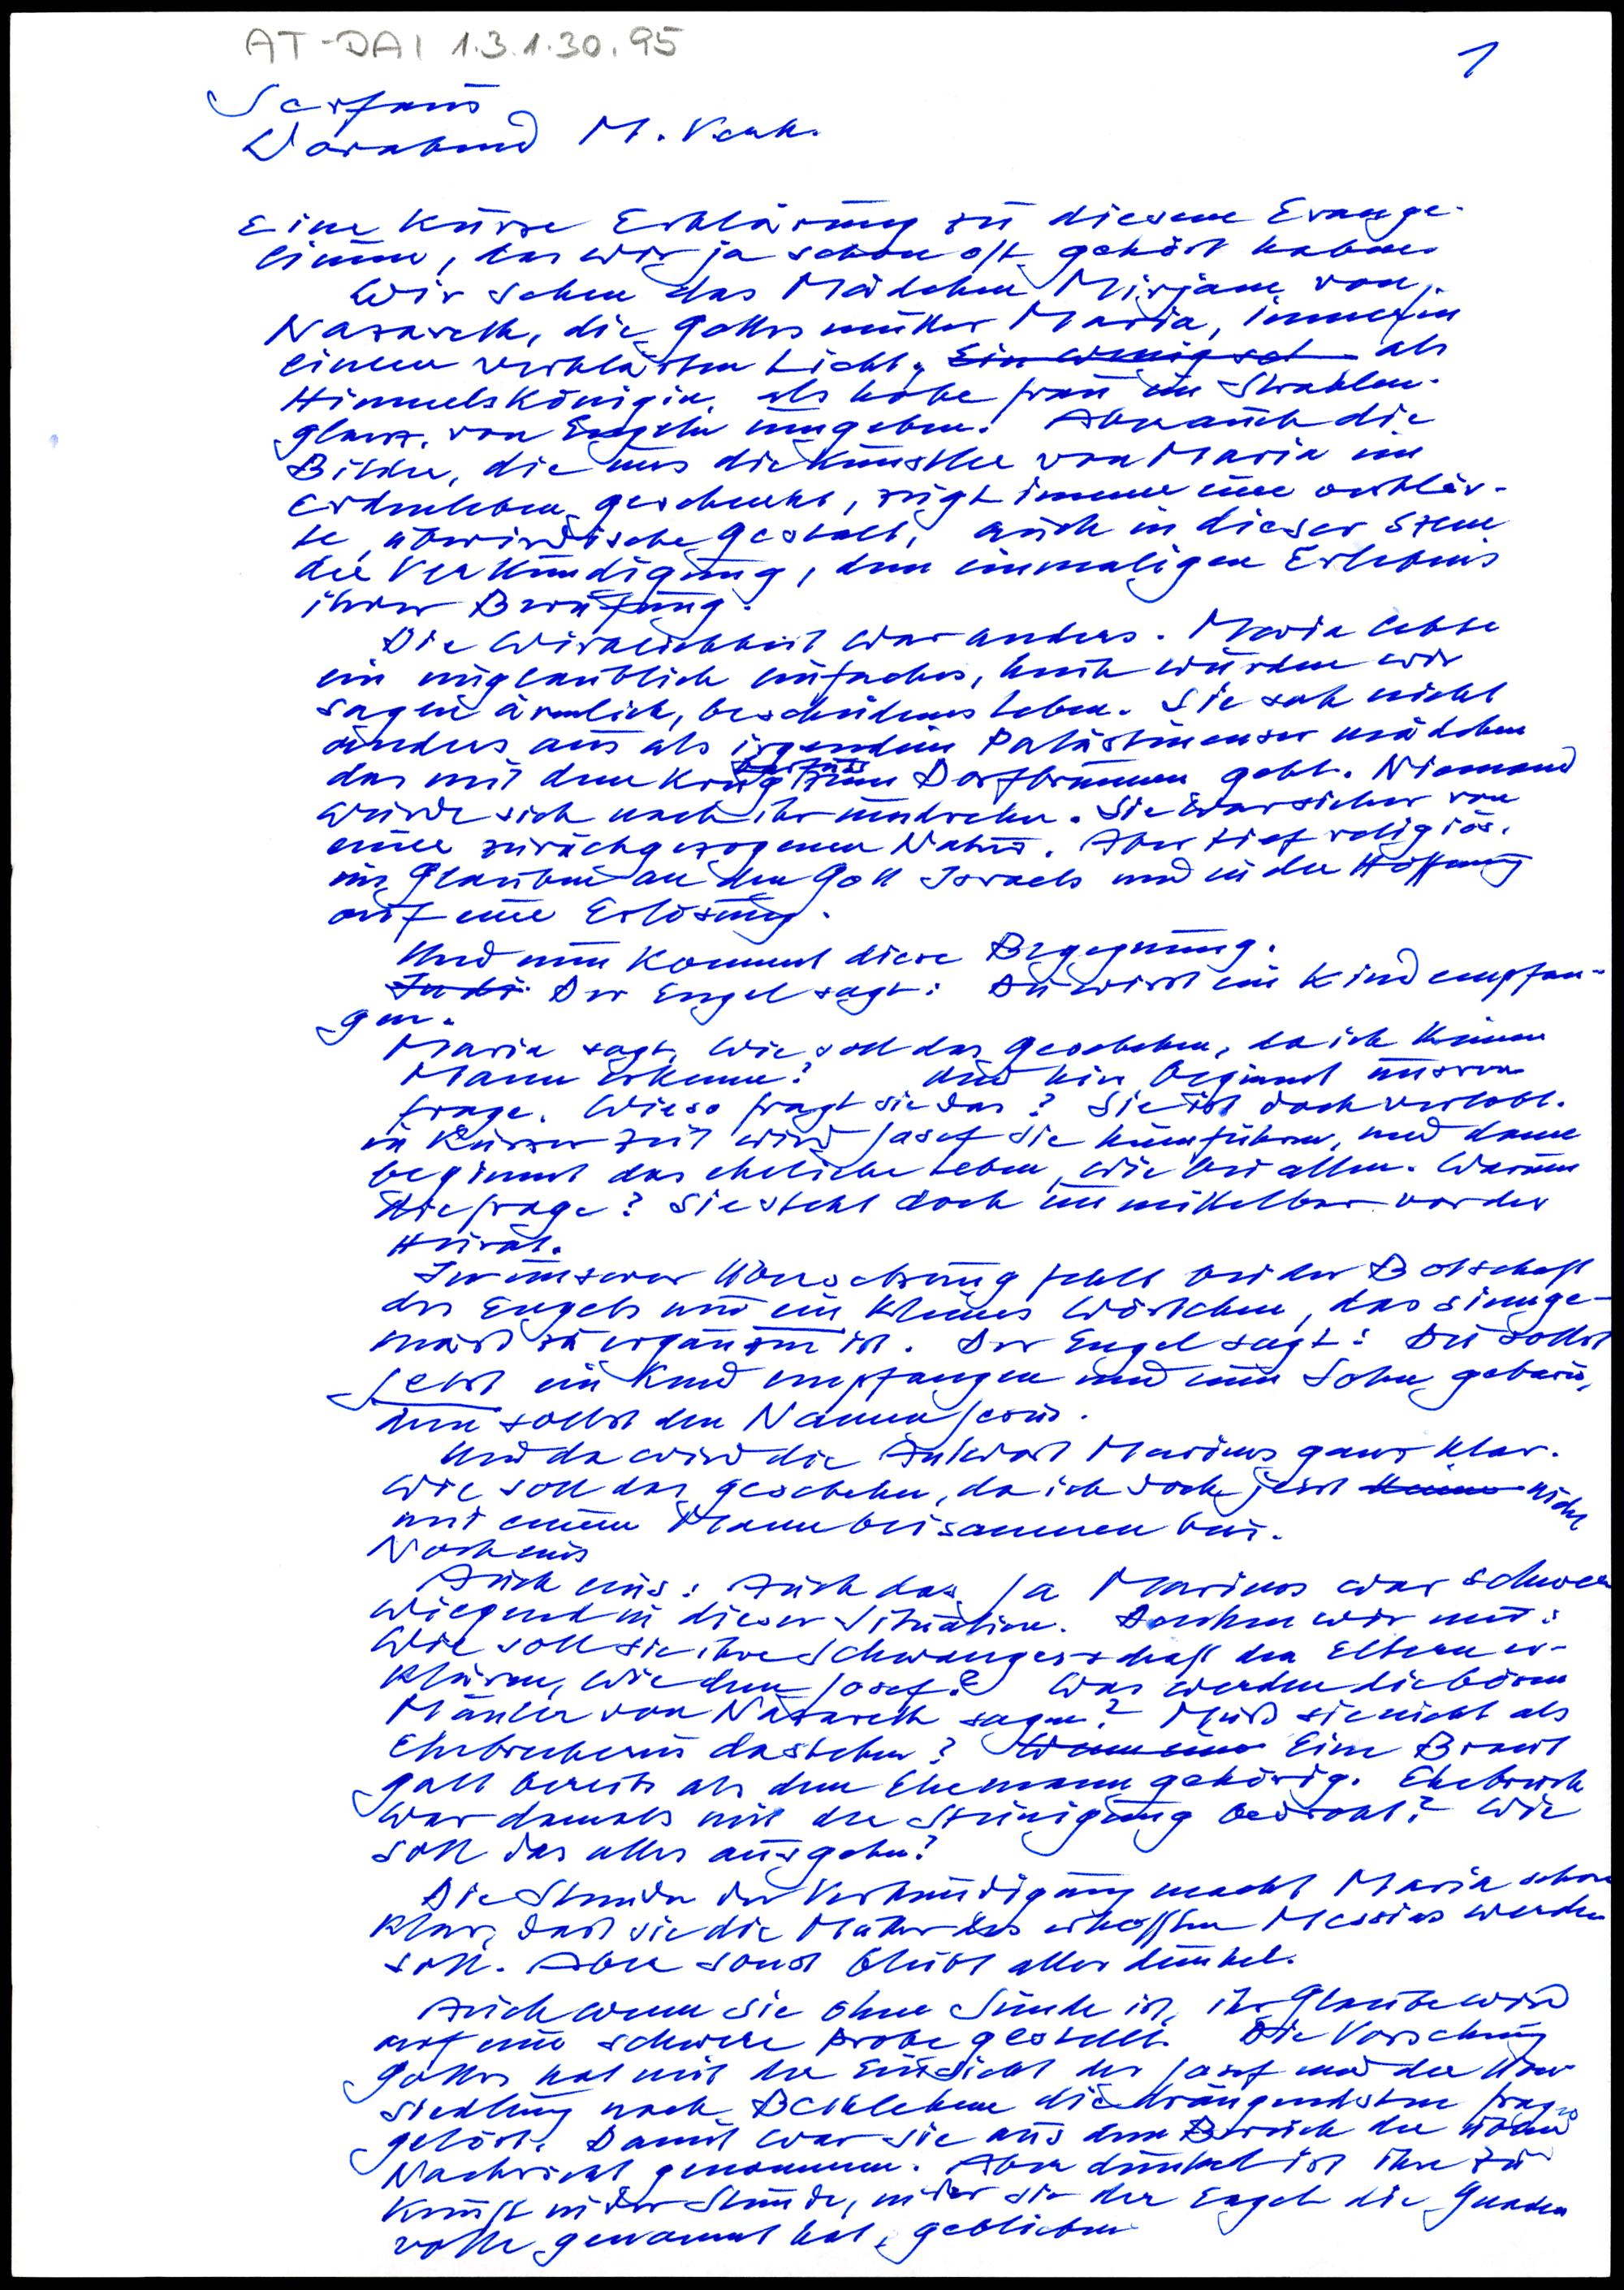 AT-DAI 1.3.1.30.95
1
Serfaus
Vorabend M. Verk.
Eine kurze Erklärung zu diesem Evange-
lium, das wir ja schon oft gehört haben.
Wir sehen das Mädchen Mirjam von
Nazareth, die Gottesmutter Maria, immer in
einem verklärten Licht, Ein wenig als
Himmelskönigin, als hohe Frau im Strahlen-
glanz, von Engeln umgeben. Aber auch die
Bilder, die uns die Künstler von Maria im
Erdenleben geschenkt, zeigt immer eine verklär-
te, überirdische Gestalt, auch in dieser Szene
der Verkündigung, dem einmaligen Erlebnis
ihrer Berufung.
Die Wirklichkeit war anders. Maria lebte
ein unglaublich einfaches, heute würden wir
sagen ärmlich, bescheidenes Leben. Sie sah nicht
anders aus als irgendein Palästinenser mädchen
barfuß
das mit dem Krug zum Dorfbrunnen geht. Niemand
würde sich nach ihr umdrehen. Sie war sicher von
einer zurückgezogenen Natur. Aber tief religiös,
im Glauben an den Gott Israels und in der Hoffnung
auf eine Erlösung.
Und nun kommt diese Begegnung.
Der Engel sagt: Du wirst ein Kind empfan-
gen.
Maria sagt, Wie soll das geschehen, da ich keinen
Mann erkenne? Und hier beginnt unsere
Frage. Wieso fragt sie das? Sie ist doch verlobt.
in kurzer Zeit wird Josef sie heimführen, und dann
beginnt das eheliche Leben, wie bei allen. Warum
die Frage? Sie steht doch unmittelbar vor der
Heirat.
In unserer Übersetzung fehlt bei der Botschaft
des Engels nur ein kleines Wörtchen, das sinnge-
mäß zu ergänzen ist. Der Engel sagt: Du sollst
jetzt ein Kind empfangen und einen Sohn gebären,
dem sollst den Namen Jesus.
Und da wird die Antwort Mariens ganz klar.
Wie soll das geschehen, da ich doch jetzt keinen nicht
mit einem Mann beisammen bin.
Noch eins
Auch eins: Auch das Ja Mariens war schwer
wiegend in dieser Situation. Denken wir nur:
Wie soll sie ihre Schwangerschaft den Eltern er-
klären, wie dem Josef? Was werden die bösen
Mäuler von Nazareth sagen? Muß sie nicht als
Ehebrecherin dastehen? Wenn eine Eine Braut
galt bereits als dem Ehemann gehörig. Ehebruch
war damals mit der Steinigung bedroht? Wie
soll das alles ausgehn?
Die Stunde der Verkündigung macht Maria schon
klar, daß sie die Mutter des erhofften Messias werden
soll. Aber sonst bleibt alles dunkel.
Auch wenn sie ohne Sünde ist, ihr Glaube wird
auf eine schwere Probe gestellt. Die Vorsehung
Gottes hat mit der Einsicht des Josef und der Über
siedlung nach Bethlehem die drängendsten Fragen
gelöst. Damit war sie aus dem Bereich der üblen
Nachricht genommen. Aber dunkel ist ihre Zu
kunft in der Stunde, in der sie der Engel die Gnaden
volle genannt hat, geblieben